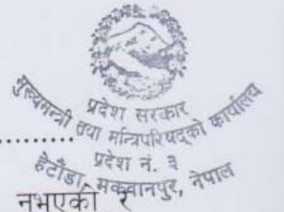 प्रदेश सरकार
मुख्यमन्त्री तथा मन्त्रिपरिषद्को कार्यालय
प्रदेश नं. ३
हेटौंडा, मकवानपुर, नेपाल
..............
नभएको र